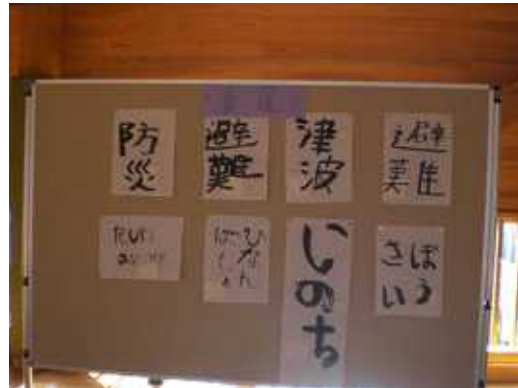 防災
避難
津波
避難
ひなん
ばしょ
いのち
ぼう
さい